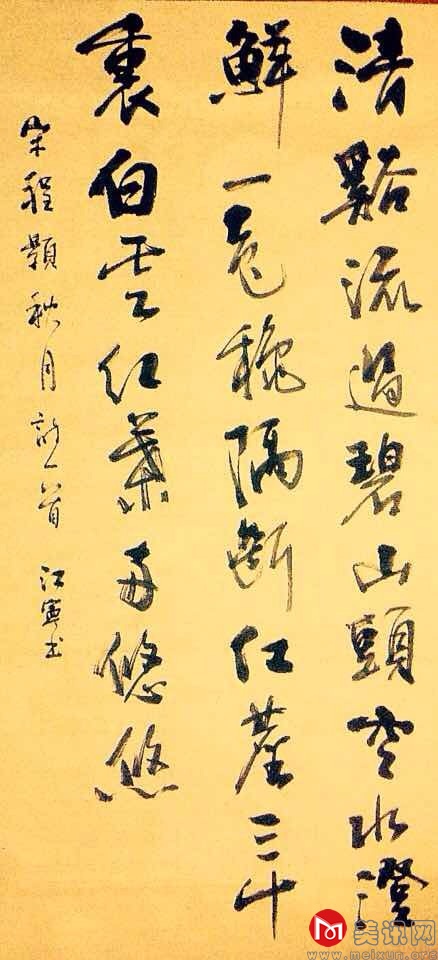 清谿流過碧山頭空水澄
鮮一色秋隔斷红塵三十
裏白雲红葉兩悠悠
宋程顥秋月詩一首 江寧書
美讯网
www.meixun.org